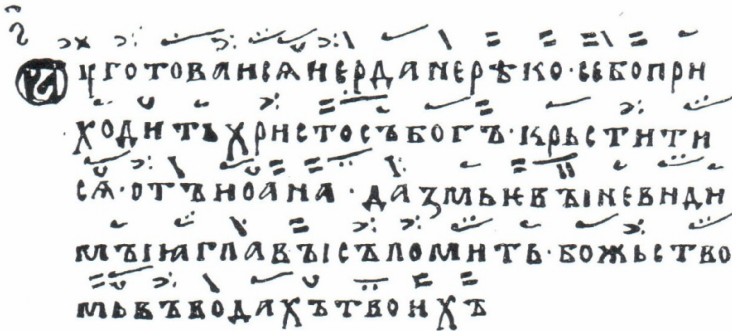 Оуготоваисѧиєрданєрѣко·сєбопри
ходитьхристосъбогъ·крьстити
сѧ·отъиоана·дазмьѥвъіневиди
мъіꙗглавъісъломить·божьство
мьвъводахътвоихъ